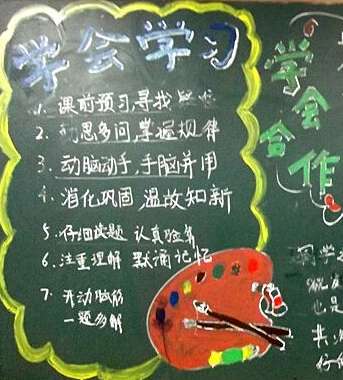 学会学习
1. 课前预习,寻找疑难
2. 思多问,掌握规律
3. 动脑动手,手脑并用
4. 消化巩固 温故知新
5. 仔细读题 认真验算
6. 注重理解 默诵记忆
7. 开动脑筋
一题多解
学会合作
同学
也是